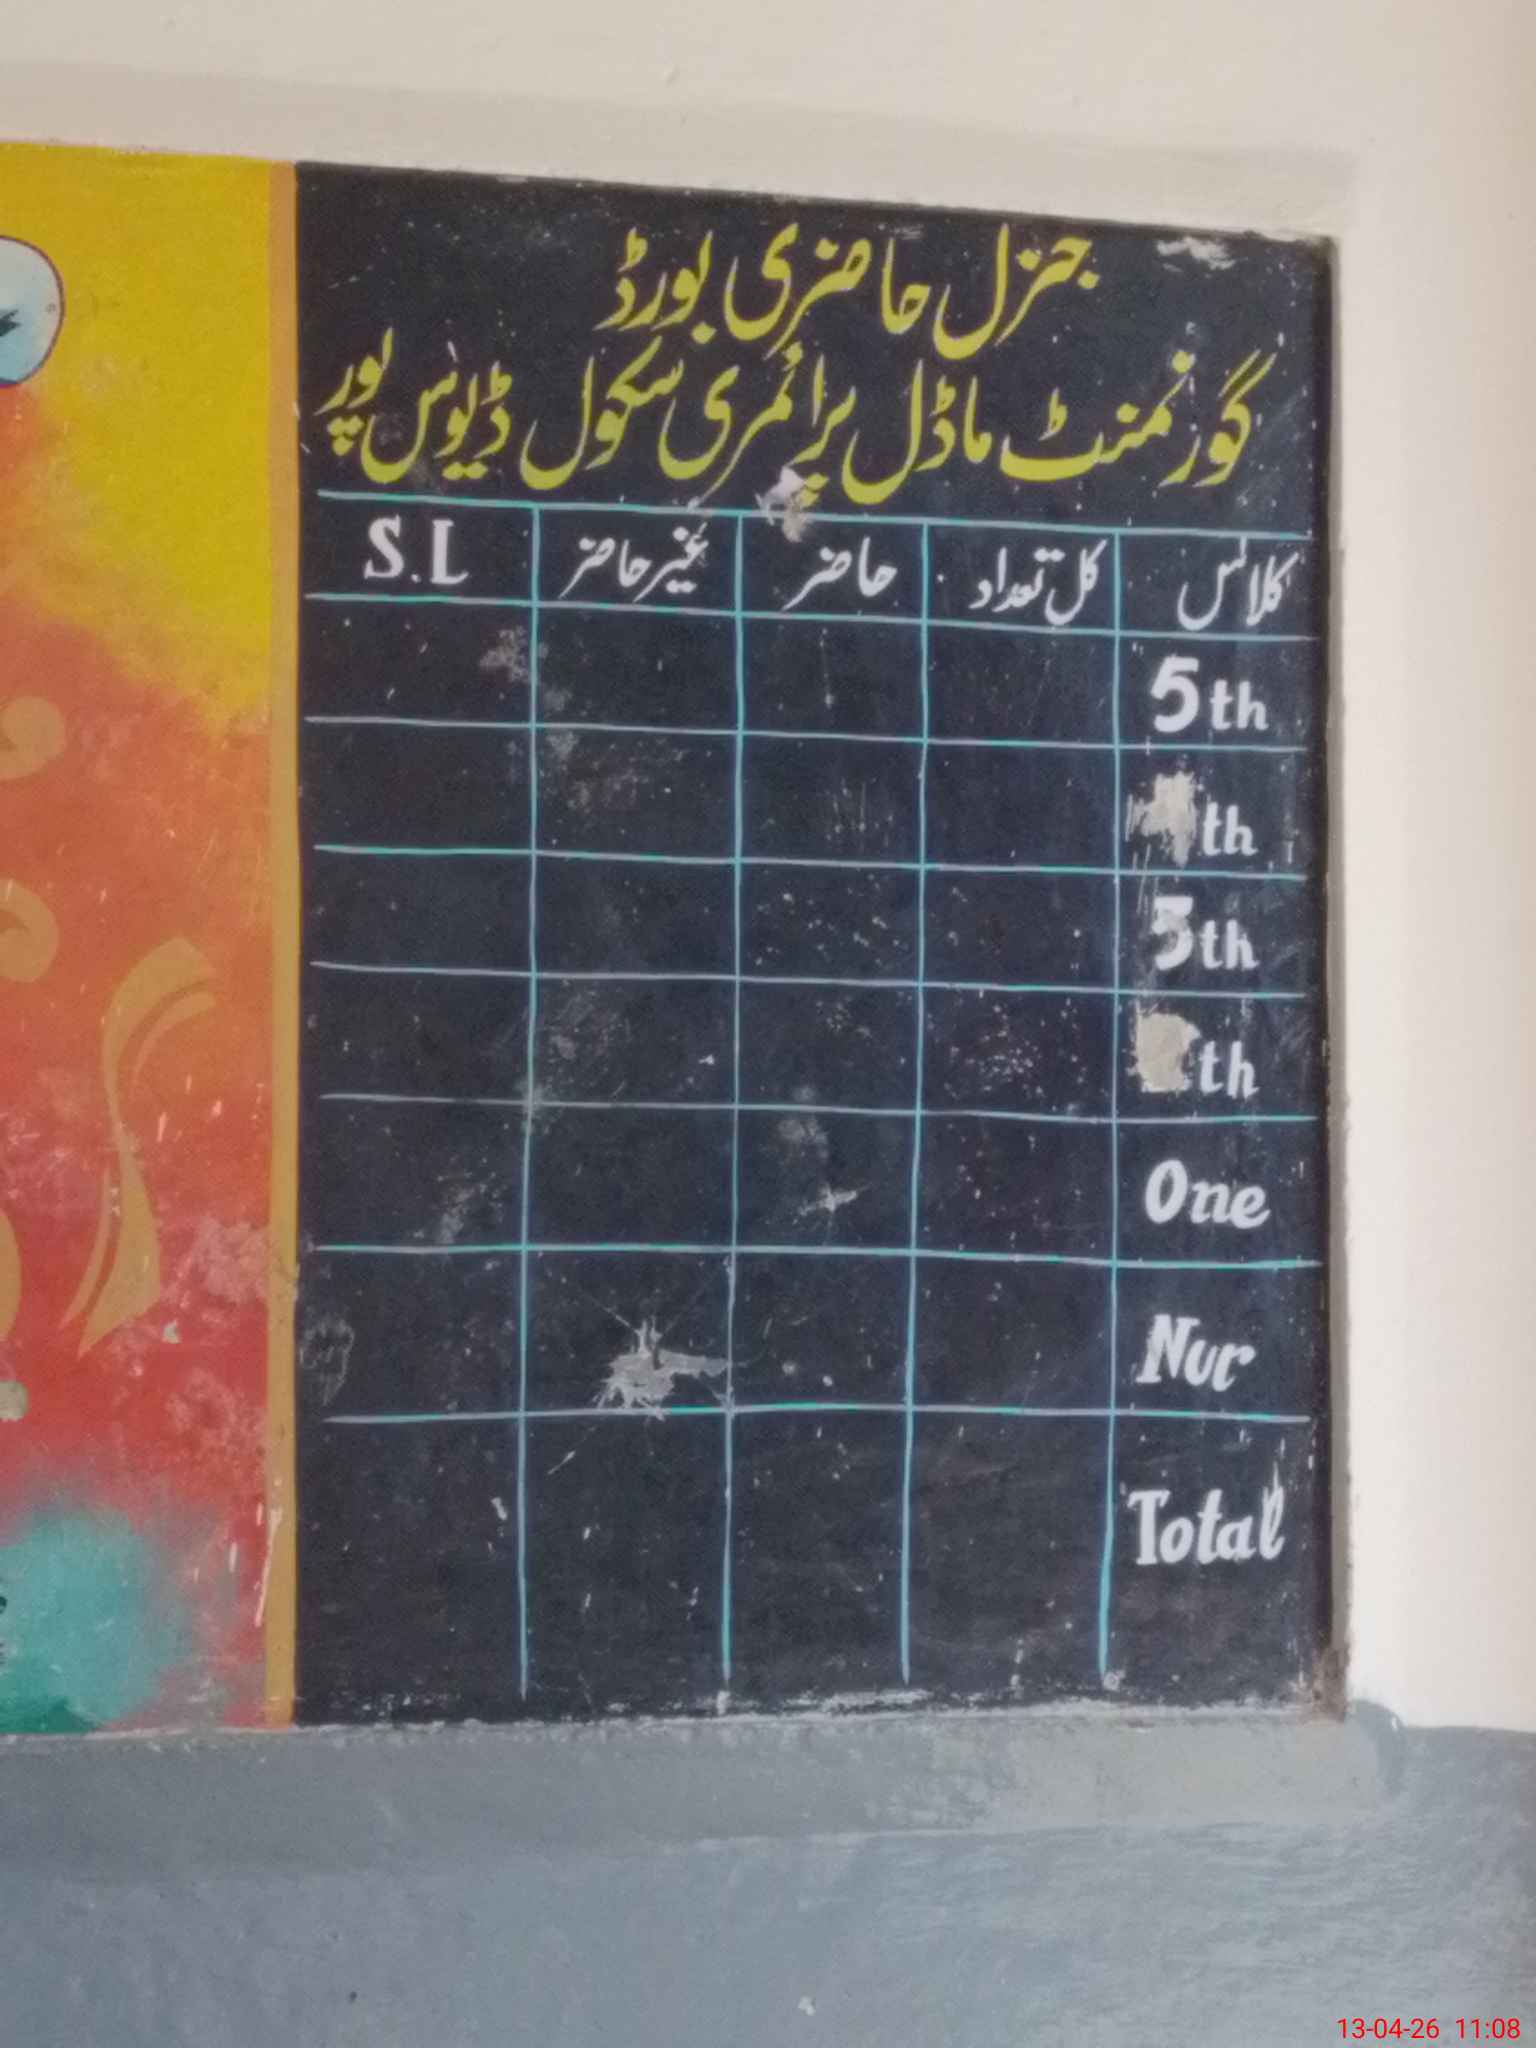 جنرل حاضری بورڈ
گورنمنٹ ماڈل پرائمری سکول ڈیوس پور
کلاس کل تعداد حاضر غیر حاضر S.L
5th
th
3th
th
One
Nur
Total
13-04-26 11:08